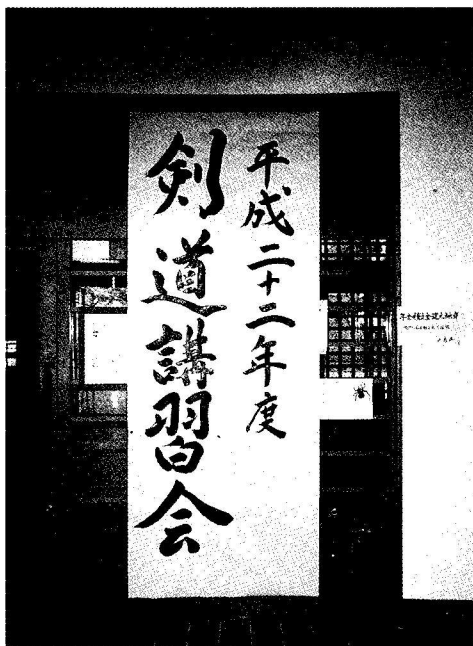 平成二十二年度
剣道講習会